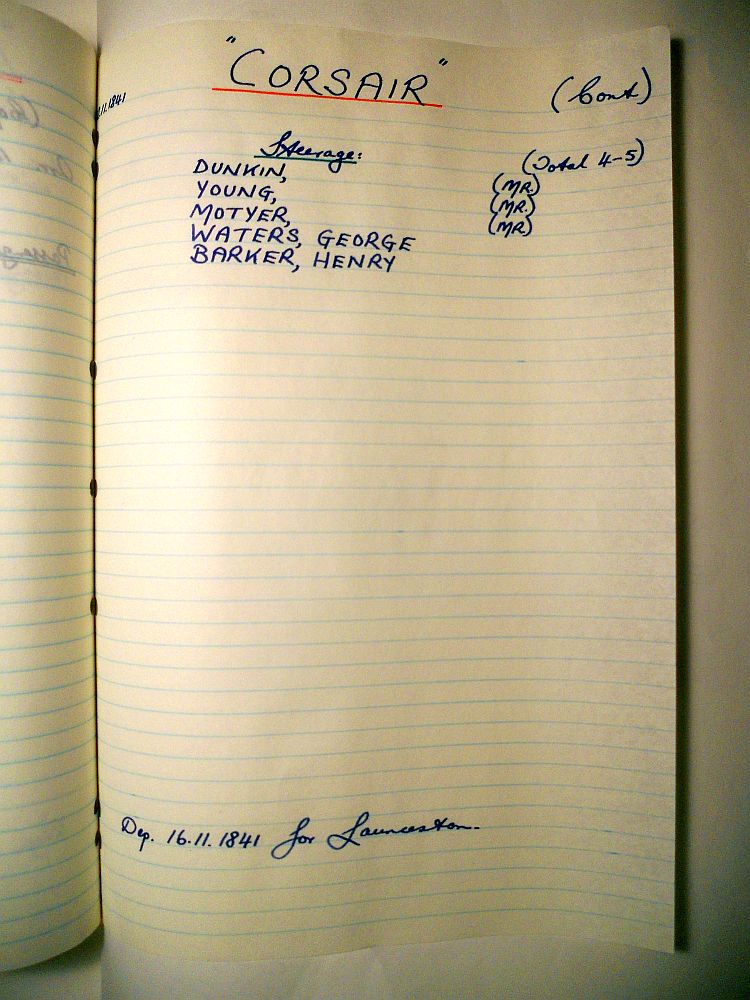 "CORSAIR" (Cont)
.11.1841
Steerage: (Total 4-5)
DUNKIN, (MR.)
YOUNG, (MR.)
MOTYER, (MR.)
WATERS, GEORGE
BARKER, HENRY
Dep. 16.11.1841 for Launceston.